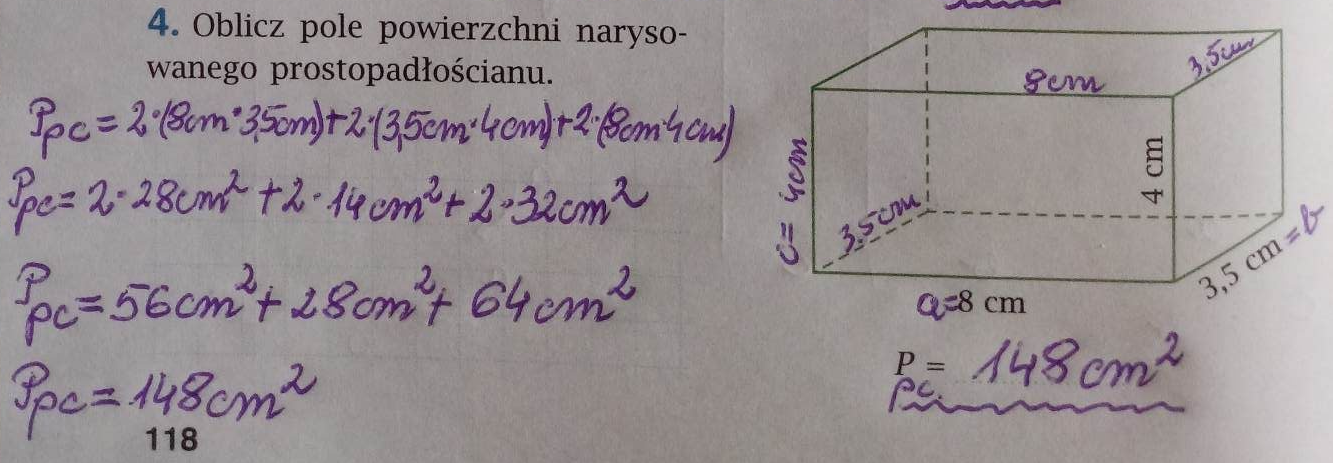 4. Oblicz pole powierzchni naryso-
wanego prostopadłościanu.
Ppc = 2·(8cm·3,5cm)+2·(3,5cm·4cm)+2·(8cm·4cm)
Ppc = 2·28cm² + 2·14cm² + 2·32cm²
Ppc = 56cm² + 28cm² + 64cm²
Ppc = 148cm²
118
3,5cm
8cm
c= 4cm
4 cm
3,5cm
3,5 cm =b
a=8 cm
P = 148cm²
pc